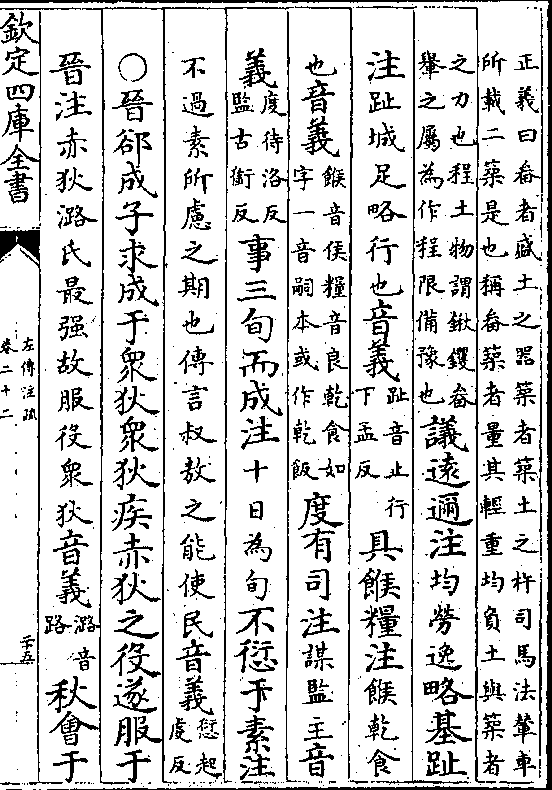 正義曰畚者盛土之器築者築土之杵司馬法輂車
所載二築是也稱畚築者量其輕重均負土與築者
之力也程土物謂鍬钁畚
轝之屬為作程限備豫也
議遠邇注均勞逸略基趾
注趾城足略行也音義
趾音止行
下孟反
具餱糧注餱乾食
也音義
餱音侯糧音良乾食如
字一音嗣本或作乾飯
度有司注謀監主音
義
度待洛反
監古銜反
事三旬而成注十日為旬不愆于素注
不過素所慮之期也傳言叔敖之能使民音義
愆起
虔反
○晉郤成子求成于衆狄衆狄疾赤狄之役遂服于
晉注赤狄潞氏最强故服役衆狄音義
潞音
路
秋會于
欽定四庫全書
左傳注疏
卷二十二